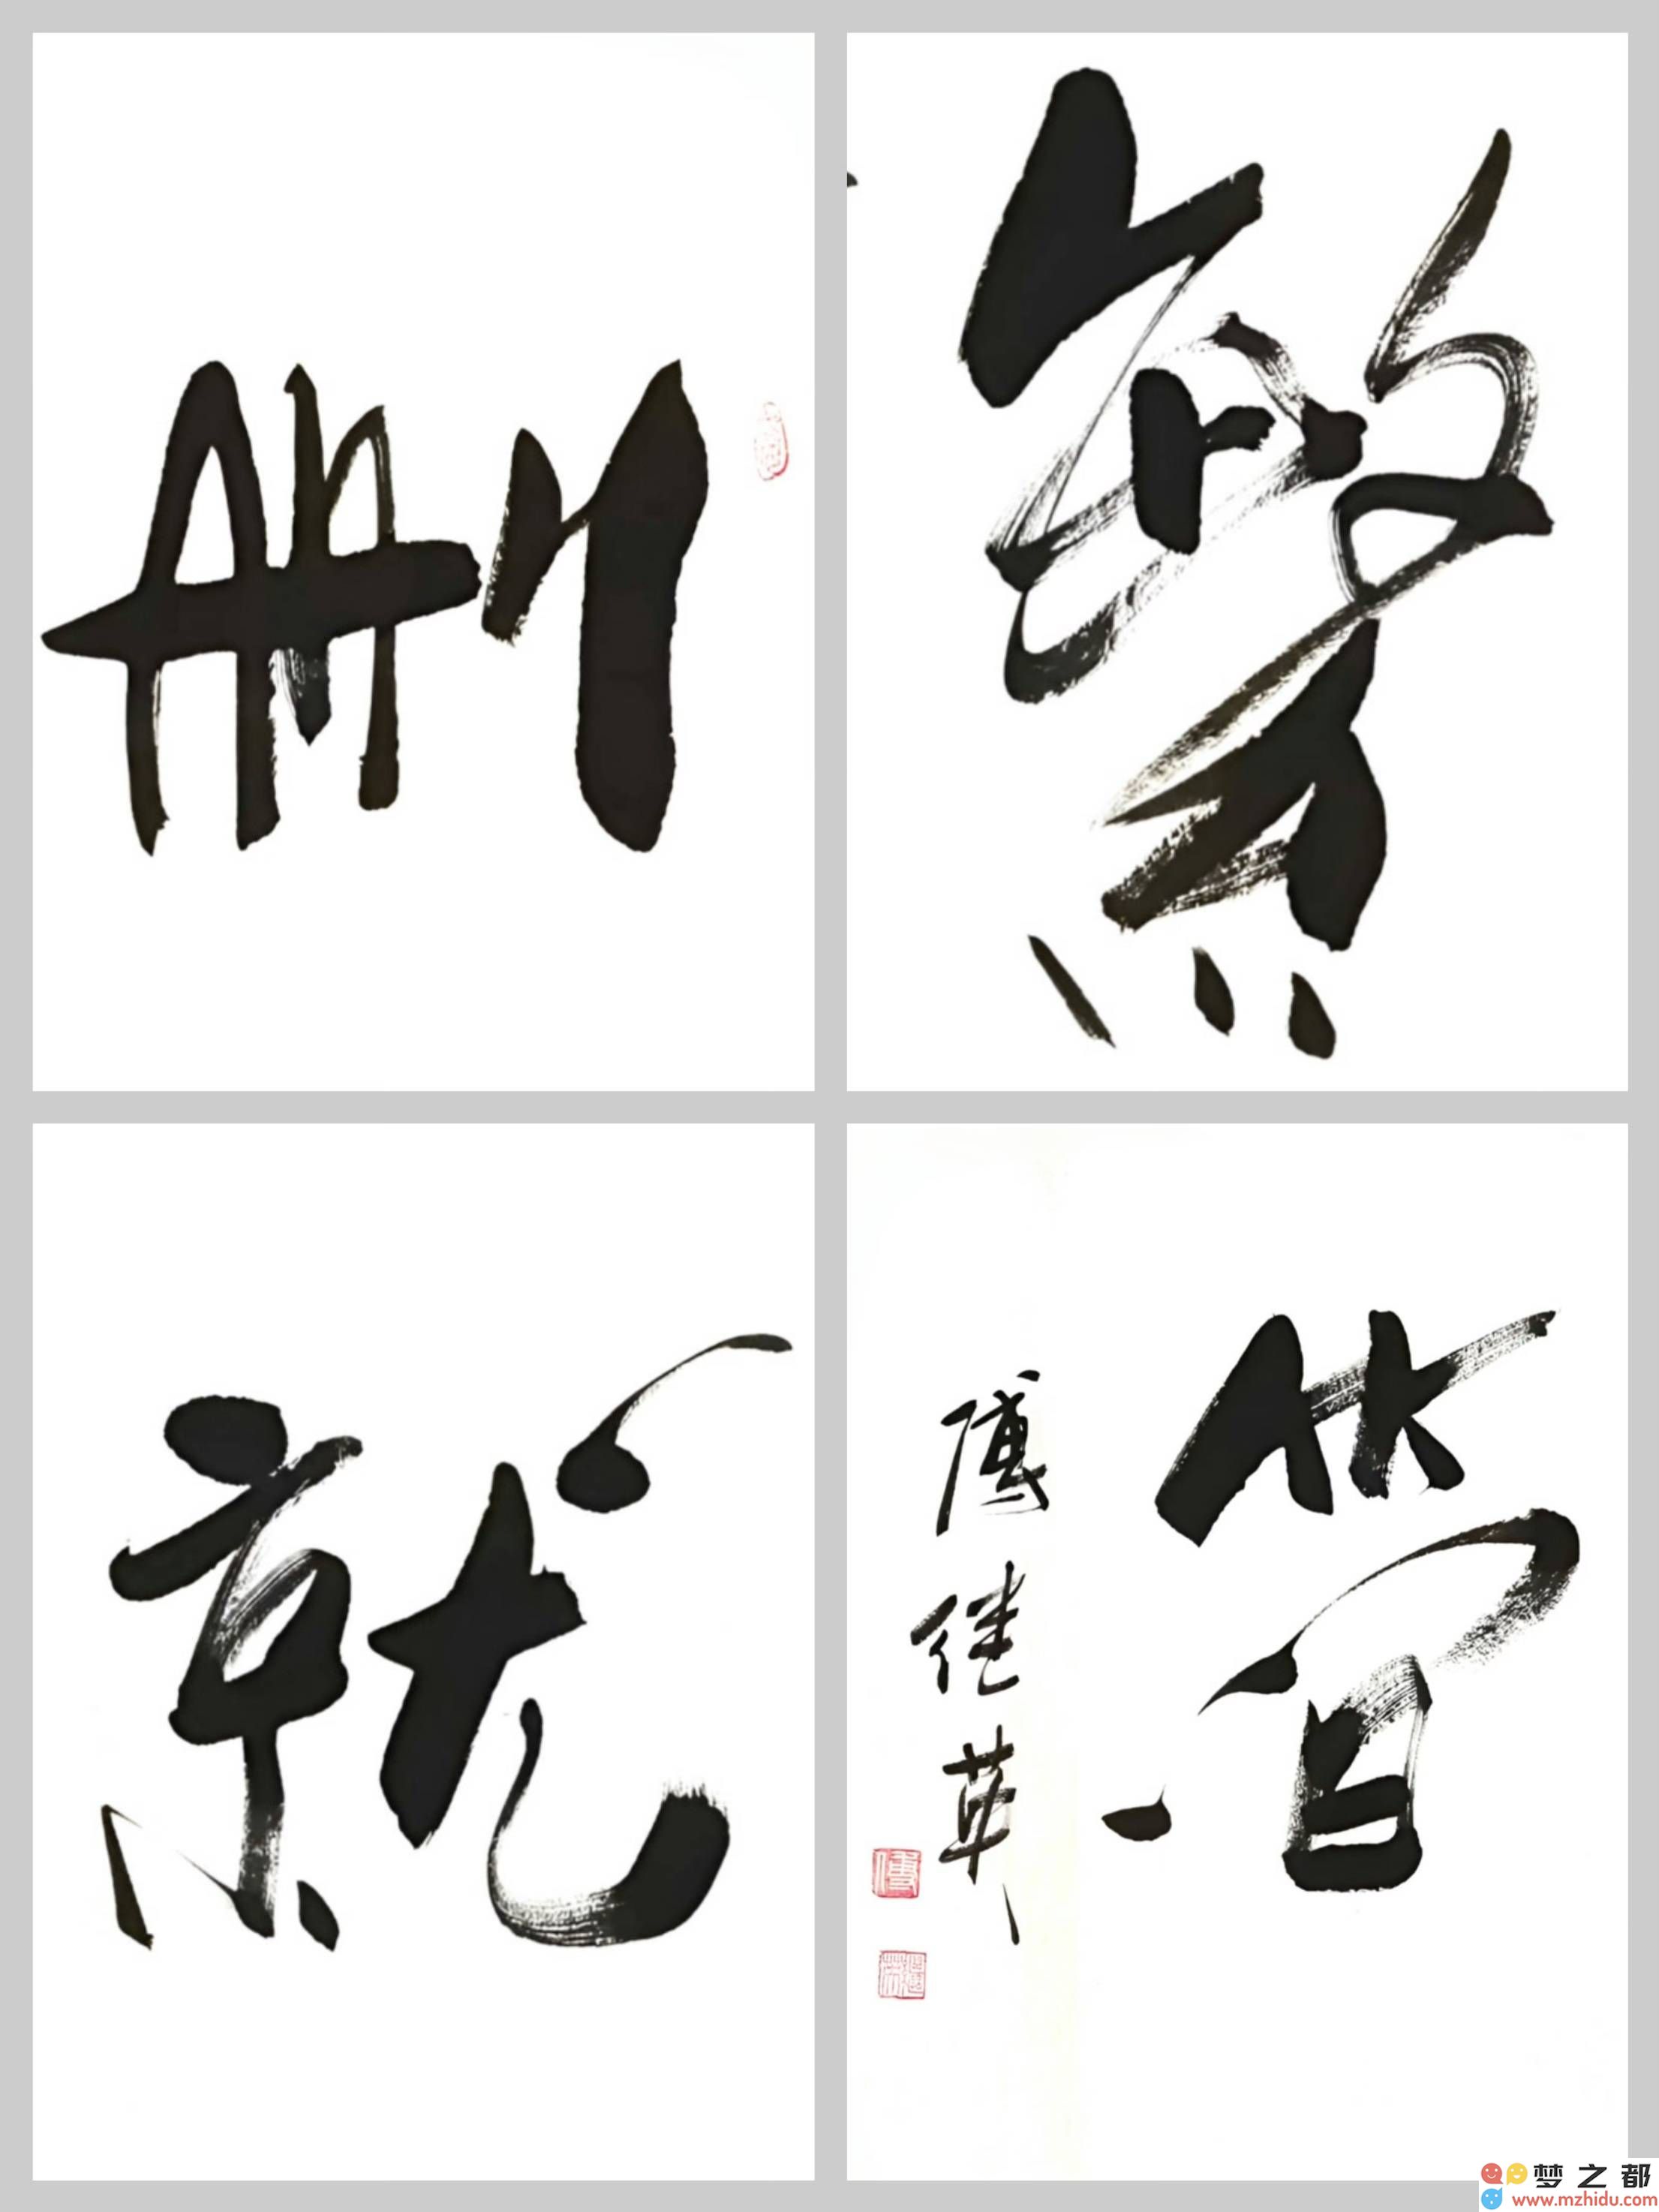 删
繁
就
简
傅继
傅
梦之都
www.mzhidu.com